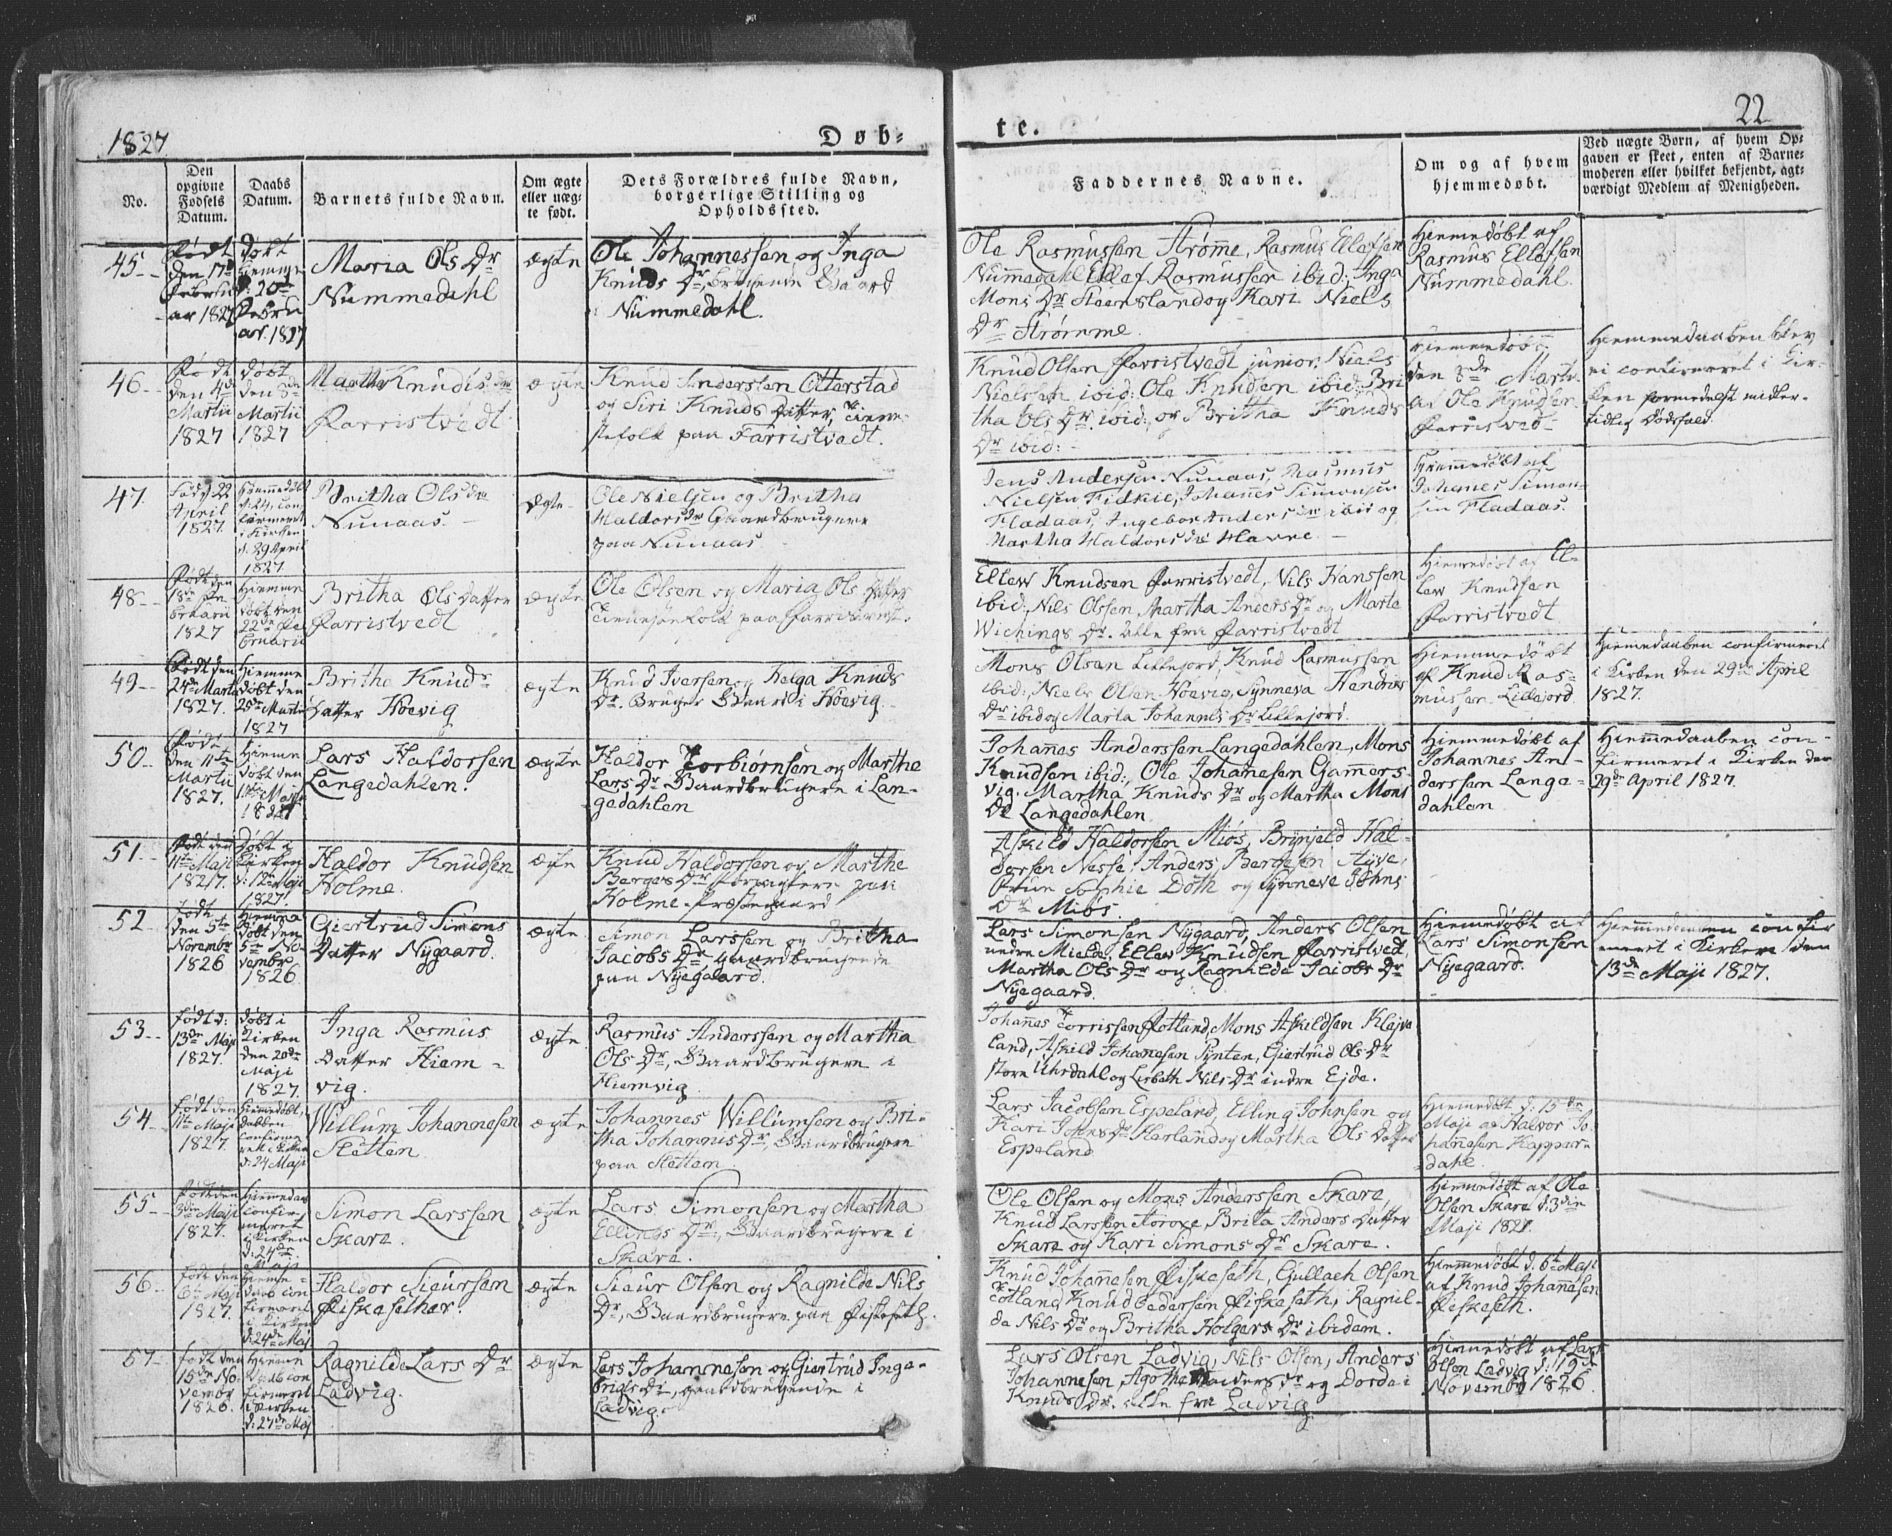 1827
Døb=
te.
22
No.
Den
opgivne
Fødsels
Datum.
Daabs
Datum.
Barnets fulde Navn.
Om ægte
eller uæg-
te født.
Dets Forældres fulde Navn,
borgerlige Stilling og
Opholdssted.
Faddernes Navne.
Om og af hvem
hjemmedøbt.
Ved uægte Børn, af hvem Op-
gaven er skeet, enten af Barne-
moderen eller hvilket bekjendt, agt-
værdigt Medlem af Menigheden.
45
Født
den 17de
Februa
ar 1827
Døbt
hiemme
d: 20de
Febru
ar. 1827
Maria Ols Dr
Nummedahl
ægte
Ole Johannessen og Inga
Knuds Dr, Brugende Gaard
Nummedahl.
Ole Rasmussen Strømme, Rasmus Ellefsen
Nummedahl Ellef Rasmussen ibid: Inga
Mons Dr Steensland og Kari Niels
Dr Strømme.
Hiemmedøbt af
Rasmus Ellefsen
Nummedahl.
46
Født
den 4de
Martii
1827
døbt
den 8de
Martii
1827
Martha Knudis dr
Farristvedt
ægte
Knud Anderssen Otterstad
og Siri Knuds Datter, Tiene-
stefolk paa Farristvedt.
Knud Olsen Farristvedt junior, Niels
Nielsen ibid: Ole Knudsen ibid: Bri
tha Ols Dr ibid: og Britha Knuds
Dr ibid:
Hiemmedøbt
den 8de Martii
af Ole Knudsen
Farristved
Hiemmedaaben blev
ei confirmeret i Kir-
ken formedelst midler-
tidlig Dødsfald.
47
Født 22
April
1827.
Hiemmedøbt
d: 24, con
firmeret
i Kirken
d. 29 April
1827
Britha Ols dr
Nunaas.
ægte
Ole Nielsen og Britha
Haldors dr Gaardbrugere
paa Nunaas
Jens Andersen Nunaas, Rasmus
Nielsen Fidkie, Johannes Simonsen
Fladaas, Ingebor Anders dr ibid og
Martha Haldors dr Havne.
Hiemmedøbt af
Johanes Simon-
sen Fladaas.
48
Født den
18de Fe
bruarii
1827
Hiemme
døbt den
22de Fe
bruarii
Britha Ols datter
Farristvedt
ægte
Ole Olsen og Maria Ols datter
Tienestefolk paa Farristvedt.
Ellew Knudsen Farristvedt, Nils Hanssen
ibid:, Nils Olssen, Martha Anders Dr og Marte
Wichings Dr. alle fra Farristvedt
Hiemmedøbt af El-
lew Knudsen
Farristvedt
49
Født den
24de Martii
1827.
Hiemme
døbt den
25de Martii
1827
Brithe Knuds
Datter Hoevig
ægte
Knud Iversen og Helga Knuds
Dr. Bruger Gaard i Hoevig
Mons Olsen Lillejord, Knud Rasmussen
ibid:, Niels Olsen Hoevig, Synneva Hendriks
Dr ibid og Marta Johannes Dr Lillejord.
Hiemmedøbt
af Knud Ras-
mussen Lillejord
Hiemmedaaben confirmeret
i Kirken den 29de April
1827.
50
Født
den 11te
Martii
1827.
Hiemme
døbt den
11te Martii
1827
Lars Haldorsen
Langedahlen.
ægte
Haldor Torbiørnsen og Marthe
Lars Dr Gaardbrugere i Lan-
gedahlen
Johanes Anderssen Langedahlen, Mons
Knudsen ibid:, Ole Johanesen Gammers-
vig. Martha Knuds Dr og Martha Mons
Dr Langedahlen
Hiemmedøbt af
Johannes An-
derssen Lange-
dahlen
Hiemmedaaben con-
firmeret i Kirken den
29de April 1827.
51
Født den
11te Maji
1827.
Døbt i
Kirken
d: 12te Maji
1827.
Haldor Knudsen
Holme.
ægte
Knud Haldorsen og Marthe
Berges Dr Forpagtere paa
Holme Præstegaard
Askild Haldorsen Miøs, Brynjeld Hal-
dorsen Nesse, Anders Bergesen
Sophie Doth og Synneve Johns
Dr Miøs.
52
Født
den 5te
Novembr
1826
Hiemme
døbt den
5te No
vembr
1826
Giertrud Simons
Datter Nygaard.
ægte
Simon Larssen og Britha
Jacobs Dr Gaardbrugende
paa Nyegaard.
Lars Simonsen Nygaard, Anders Olsen
nedre Mielde, Ellew Knudsen Farristvedt,
Martha Ols Dr og Ragnilde Jacobs Dr
Nyegaard.
Hiemmedøbt af
Lars Simonsen
Nyegaard.
Hiemmedaaben confir
meret i Kirken den
13de Maji 1827.
53
født d:
13de Maji
1827.
døbt i
Kirken
den 20de
Maji
1827.
Inga Rasmus
Datter Hiem-
vig.
ægte
Rasmus Anderssen og Martha
Ols Dr, Gaardbrugere i
Hiemvig.
Johanes Torrissen Jotland, Mons Askildsen Kleive
land, Askild Johanesen Synten, Giertrud Ols Dr
store Uhrdahl og Lisbeth Nils Dr indre Ejde.
54
født den
11te Maji
1827.
Hiemmedøbt,
daaben
confirme
ret i Kirken
d: 24 Maji
Willum Johannesen
Sletten.
ægte
Johannes Willumsen og Bri-
tha Johannis Dr, Gaardbrugere
paa Slettem
Lars Jacobsen Espeland, Elling Johnsen og
Kari Johns Dr Herland og Martha Ols Datter
Espeland
Hiemmedøbt d: 15de
Maji af Halvor Jo-
hannesen Happar-
dahl.
55
Født den
3die Maji
1827.
Hiemmedaab
confir-
meret
i Kirken
d: 24de
Maji
Simon Larssen
Skare.
ægte
Lars Simonsen og Martha
Ellings Dr, Gaardbrugere i
Skare.
Ole Olsen og Mons Anderssen Skare,
Knud Larssen Brita Anders Datter
Skare og Kari Simons Dr Skare.
Hiemmedøbt af Ole
Olsen Skare d. 3die
Maji 1827.
56
født den
6te Maji
1827.
Hieme-
daab con
firmeret
i Kirken
d: 24de Maj
Haldor Siursen
Fiskesether.
ægte
Siur Olsen og Ragnilde Nils
Dr, Gaardbrugere paa Fiskeseth.
Knud Johannesen Fiskeseth, Gullach Olsen
Totland, Knud Pedersen Fiskeseth, Ragnil-
da Nils Dr og Britha Holgers Dr ibidem.
Hiemmedøbt d. 6te Maji
af Knud Johannesen
Fiskeseth.
57
født den
15de No
vembr
1826.
Hieme
daab con
firmeret
i Kirken
d: 27de Maj
Ragnilde Lars Dr
Ladvig.
ægte
Lars Johannesen og Giertrud Inge-
brigts Dr, Gaardbrugende i
Ladvig.
Lars Olsen Ladvig, Nils Olsen, Anders
Johannesen, Agothe Anders dr og Dordei
Knuds dr. alle fra Ladvig
Hiemmedøbt af Lars
Olsen Ladvig d: 19de
Novembr 1826.